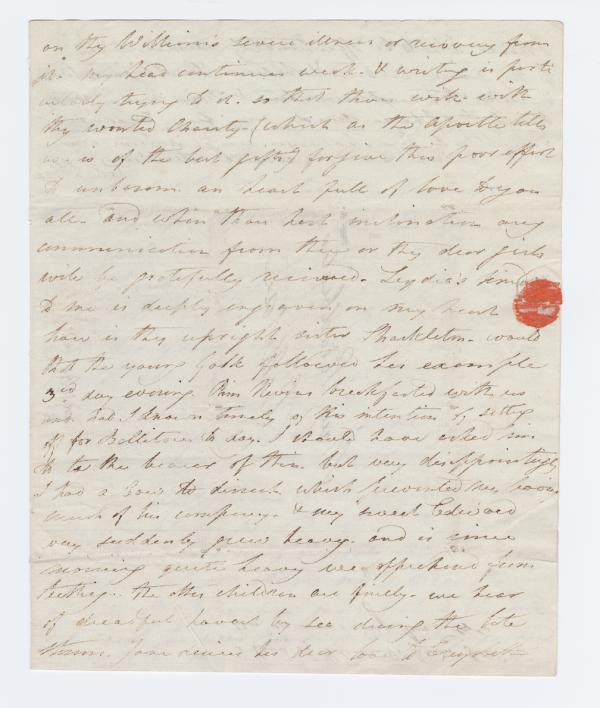 on thy William's severe illness or recovery from
it. my head continues weak. & writing is parti
cularly trying to it. so that thou wilt with
thy wonted charity (which as the apostle tells
us is of the best gifts) forgive this poor effort
to unbosom an heart full of love to you
all. and when thou hast inclination any
communication from thee or thy dear girls
will be gratefully received. Lydia's
to me is deeply engraven on my heart
how is thy upright sister Shackleton. would
that the young folk followed her example
3rd day evening. Pim Nevins breakfasted with us
and had I known timely of his intention of setting
off for Ballitore to day. I should have asked him
to be the bearer of this. but very disappointingly
I had a to dinner which prevented my having
much of his company. & my sweet Edward
very suddenly grew heavy. and is since
morning quite heavy we apprehend from
teething. the other children are finely. we hear
of dreadful havock by sea during the late
storm. Jane desires her dear love to Elizabeth